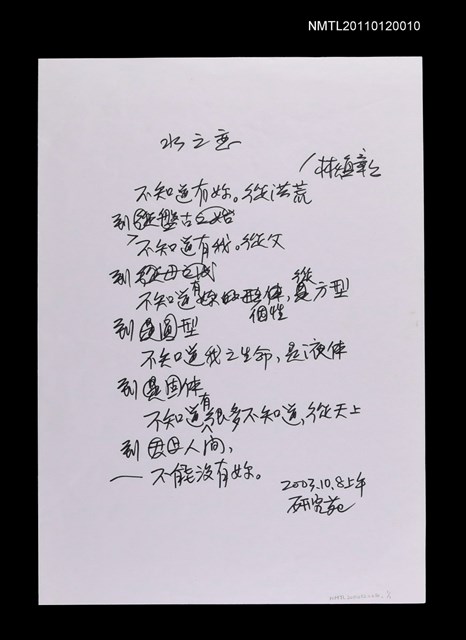 NMTL20110120010
水之恋
/林煥彰
不知道有妳。從洪荒
到盤古之始
不知道有我。從父
到從母之我
不知道有妳的型体,從方型
個性
到圓型
不知道我之生命,是液体
到是固体
不知道有很多不知道,從天上
到人間,
— 不能沒有妳。
2003.10.8上午
研究苑